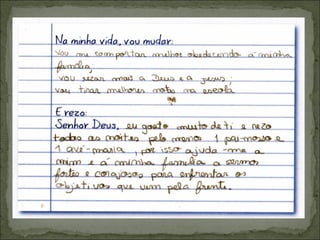 Na minha vida, vou mudar:
Vou me comportar melhor obedecendo á minha
família;
vou rezar mais a Deus e a Jesus;
vou tirar melhores notas na escola
E rezo:
Senhor Deus, eu gosto muito de ti e rezo
todas as noites pelo menos 1 pai-nosso e
1 avé-maria, por isso ajuda-me a
mim e á minha família a sermos
fortes e corajosos para enfrentar os
objetivos que vem pela frente.